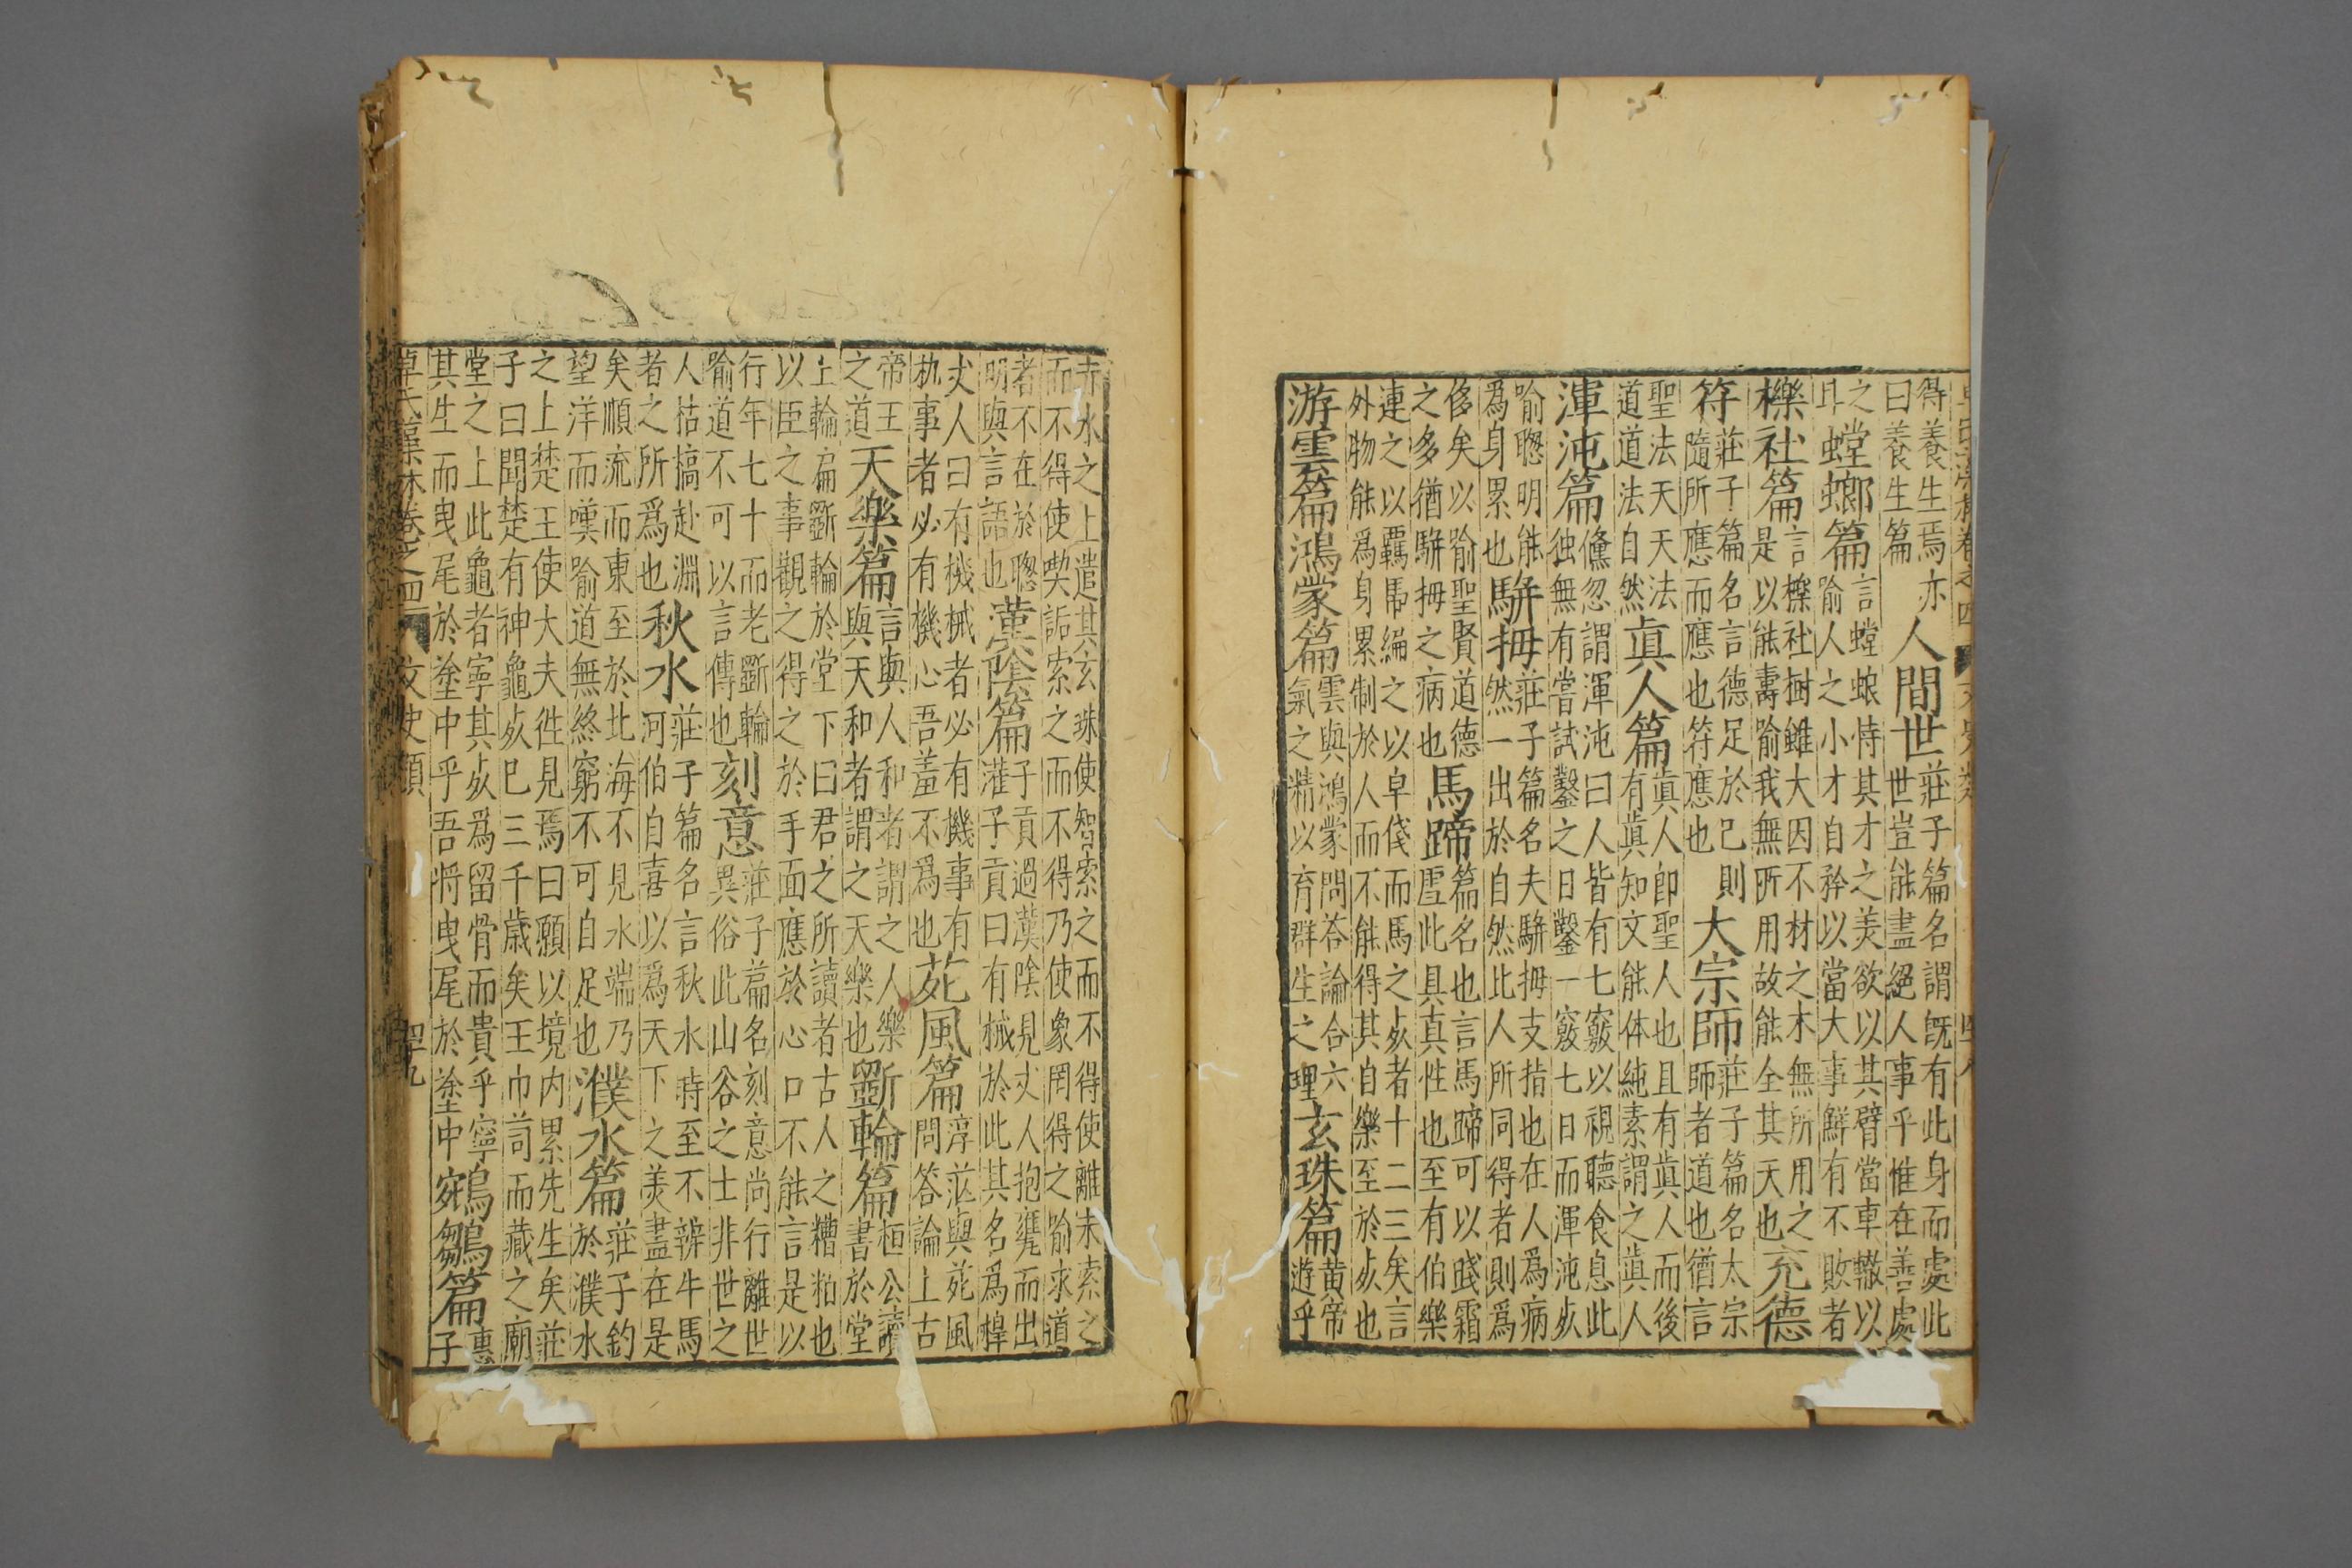 得養生焉亦曰養生篇人間世莊子篇名謂既有此身而處此世豈能盡絕人事乎惟在善處
之耳螳螂篇言螳蜋恃其才之美欲以其臂當車轍以喻人之小才自矜以當大事鮮有不敗者
櫟社篇言櫟社樹雖大因不材之木無所用之是以能壽喻我無所用故能全其天也充德
符莊子篇名言德足於己則隨所應而應也符應也大宗師莊子篇名太宗師者道也猶言
聖法天天法道道法自然眞人篇眞人即聖人也且有眞人而後有眞知文能体純素謂之眞人
渾沌篇儵忽謂渾沌曰人皆有七竅以視聽食息此独無有嘗試鑿之日鑿一竅七日而渾沌死
喻聰明能爲身累也駢拇莊子篇名夫駢拇支指也在人爲病然一出於自然比人所同得者則爲
侈矣以喻聖賢道德之多猶駢拇之病也馬蹄篇名也言馬蹄可以踐霜雪此具真性也至有伯樂
連之以羈馽編之以皁伐而馬之死者十二三矣言外物能爲身累制於人而不能得其自樂至於死也
游雲篇鴻蒙篇雲與鴻蒙問答論合六氣之精以育群生之理玄珠篇黃帝遊乎
赤水之上遺其玄珠使智索之而不得使離朱索之而不得使喫詬索之而不得乃使象罔得之喻求道
者不在於聰明與言語也漢陰篇子貢過漢陰見丈人抱甕而出灌子貢曰有械於此其名爲槹
丈人曰有機械者必有機事有機事者必有機心吾羞不爲也苑風篇淳茫與苑風問答論上古
帝王之道天樂篇言與人和者謂之人樂與天和者謂之天樂也斲輪篇桓公讀書於堂
上輪扁斲輪於堂下曰君之所讀者古人之糟粕也以臣之事觀之得之於手面應於心口不能言是以
行年七十而老斲輪喻道不可以言傳也刻意莊子篇名刻意尚行離世異俗此山谷之士非世之
人枯槁赴淵者之所爲也秋水莊子篇名言秋水時至不辨牛馬河伯自喜以爲天下之美盡在是
矣順流而東至於北海不見水端乃望洋而嘆喻道無終窮不可自足也濮水篇莊子釣於濮水
之上楚王使大夫徃見焉曰願以境内累先生矣莊子曰聞楚有神龜死已三千歲矣王巾笥而藏之廟
堂之上此龜者寧其死爲留骨而貴乎寧其生而曳尾於塗中乎吾將曳尾於塗中鵷鶵篇惠子
卓氏藻林卷之四 文史類 四十九